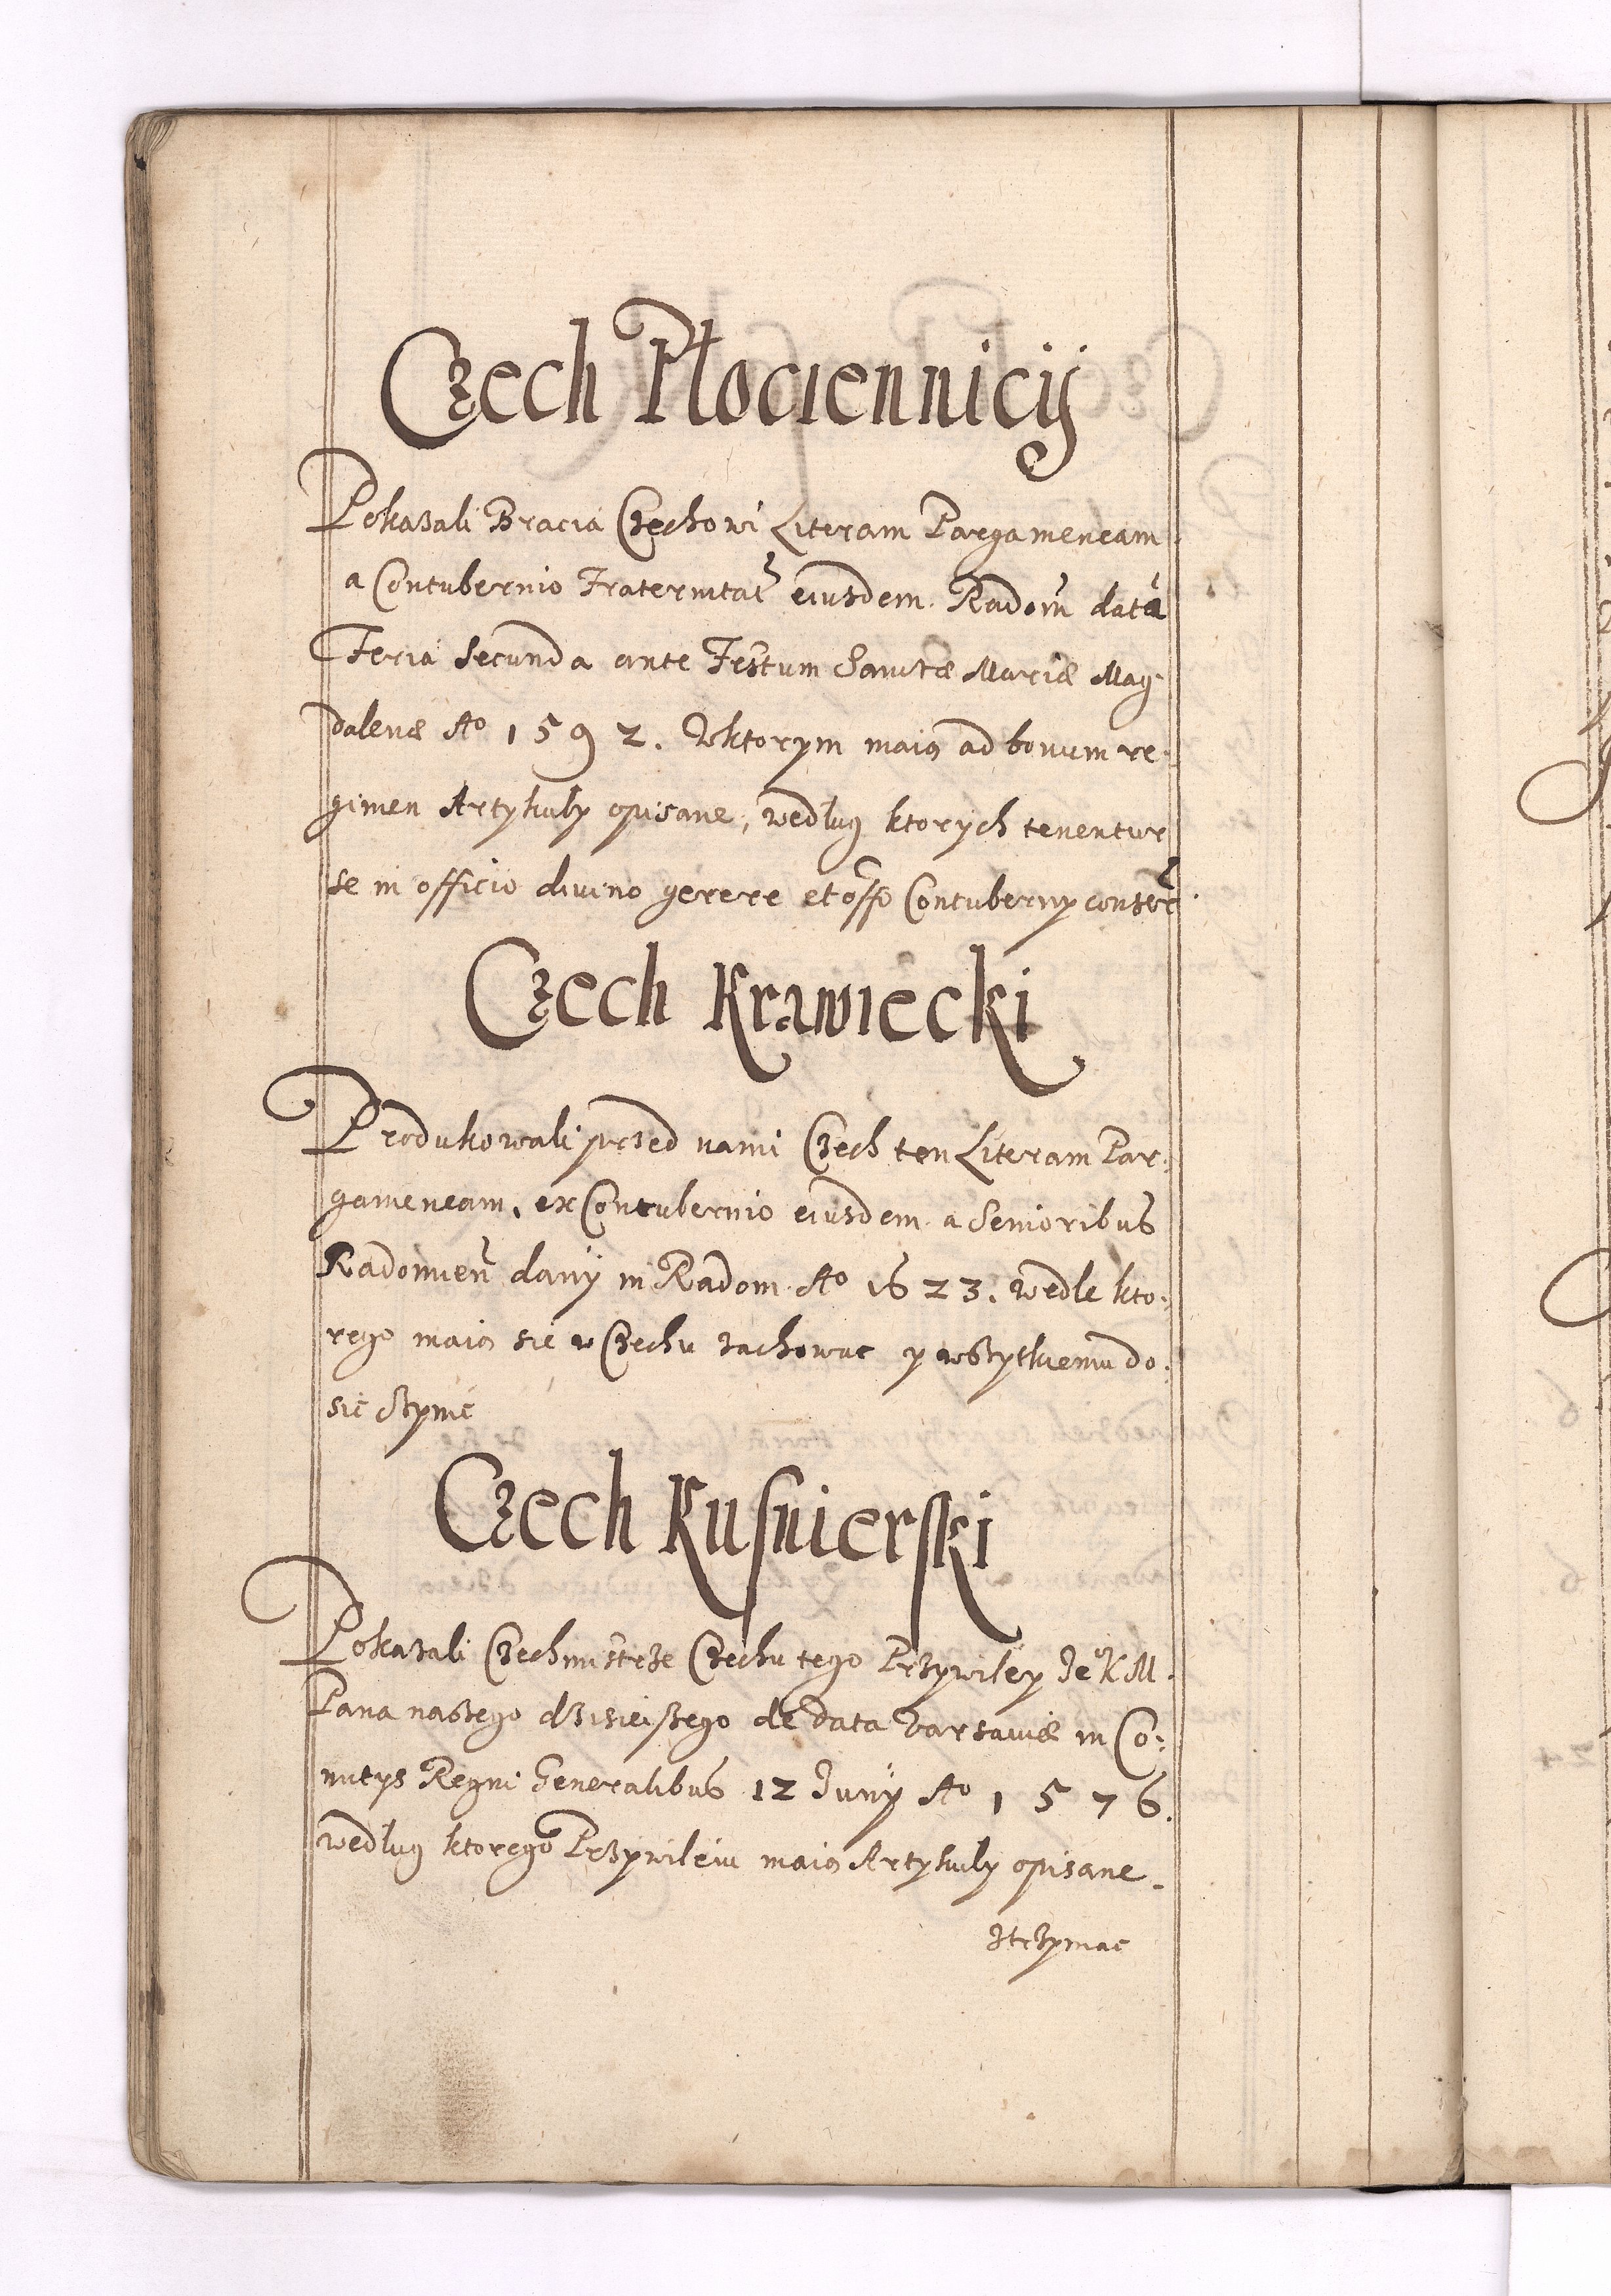 Czech Płociennicÿ
Pokazali Bracia Czechowi Literam Pargameneam
a Contubernio Fraternitat eiusdem Radom̃ datã
Feria Secunda ante Festum Sanctæ Mariæ Mag-
dalenæ Aº 1592. Wktorym maią ad bonum re-
gimen Artykuły opisane, według ktorych tenentur
se in officio diuino gerere et offo Contuberny
Czech Krawiecki
Produkowali przed nami Czech ten Literam Par:
gameneam, ex Contubernio eiusdem a Senioribus
Radomień danÿ in Radom Aº 1623. wedle kto:
rego maią sie w Czechu zachowac y wszytkiemu do:
sic czynic
Czech Kusnierski
Pokazali Czechmistrze Czechu tego Przywiley Je° K M
Pana naszego dzisieiszego de data Varsauiæ in Co:
mitys Regni Generalibus 12 Junÿ Aº 1576.
według ktorego Przywileiu maią Artykuły opisane
ztrzymac